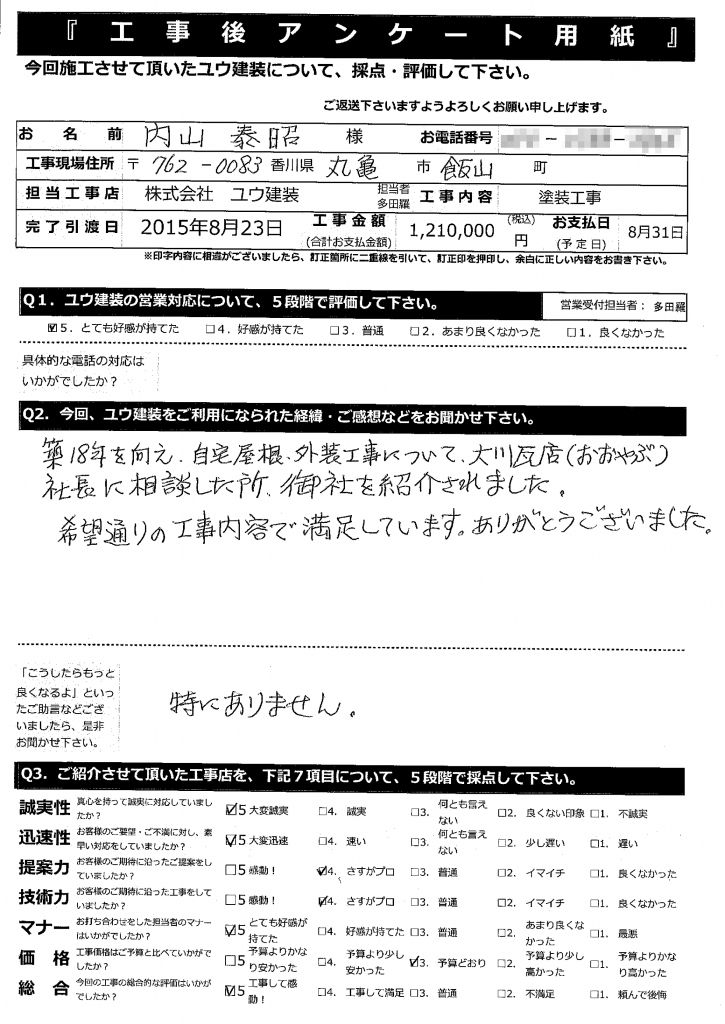 『工事後アンケート用紙』
今回施工させて頂いたユウ建装について、採点・評価して下さい。
ご返送下さいますようよろしくお願い申し上げます。
お名前 内山 泰昭 様 お電話番号 － －
工事現場住所 〒762－0083 香川県 丸亀 市 飯山 町
担当工事店 株式会社 ユウ建装 担当者 多田羅 工事内容 塗装工事
完了引渡日 2015年8月23日 工事金額 (合計お支払金額) 1,210,000 (税込) 円 お支払日 (予定日) 8月31日
※印字内容に相違がございましたら、訂正箇所に二重線を引いて、訂正印を押印し、余白に正しい内容をお書き下さい。
Q1. ユウ建装の営業対応について、5段階で評価して下さい。 営業受付担当者：多田羅
☑5. とても好感が持てた □4. 好感が持てた □3. 普通 □2. あまり良くなかった □1. 良くなかった
具体的な電話の対応は
いかがでしたか？
Q2. 今回、ユウ建装をご利用になられた経緯・ご感想などをお聞かせ下さい。
築18年を向え、自宅屋根、外装工事について、大川瓦店(おおやぶ)
社長に相談した所、御社を紹介されました。
希望通りの工事内容で満足しています。ありがとうございました。
「こうしたらもっと
良くなるよ」といっ
たご助言などござ
いましたら、是非
お聞かせ下さい。
特にありません。
Q3. ご紹介させて頂いた工事店を、下記7項目について、5段階で採点して下さい。
誠実性 真心を持って誠実に対応していましたか？ ☑5 大変誠実 □4. 誠実 □3. 何とも言えない □2. 良くない印象 □1. 不誠実
迅速性 お客様のご要望・ご不満に対し、素早い対応をしていましたか？ ☑5 大変迅速 □4. 速い □3. 何とも言えない □2. 少し遅い □1. 遅い
提案力 お客様のご期待に沿ったご提案をしていましたか？ □5 感動！ ☑4. さすがプロ □3. 普通 □2. イマイチ □1. 良くなかった
技術力 お客様のご期待に沿った工事をしていましたか？ □5 感動！ ☑4. さすがプロ □3. 普通 □2. イマイチ □1. 良くなかった
マナー お打ち合わせをした担当者のマナーはいかがでしたか？ ☑5 とても好感が持てた □4. 好感が持てた □3. 普通 □2. あまり良くなかった □1. 最悪
価格 工事価格はご予算と比べていかがでしたか？ □5 予算よりかなり安かった □4. 予算より少し安かった ☑3. 予算どおり □2. 予算より少し高かった □1. 予算よりかなり高かった
総合 今回の工事の総合的な評価はいかがでしたか？ ☑5 工事して感動！ □4. 工事して満足 □3. 普通 □2. 不満足 □1. 頼んで後悔